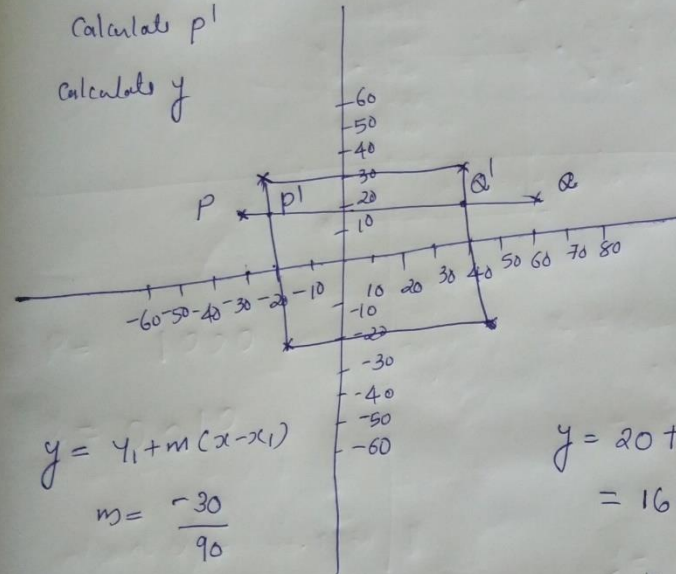 Calculate p'
Calculate y
60
50
40
30
P P' 20 Q' Q
10
-60 -50 -40 -30 -20 -10 10 20 30 40 50 60 70 80
-10
-20
-30
-40
-50
-60
y = y₁+m(x-x₁)
m= -30
90
y = 20+
= 16